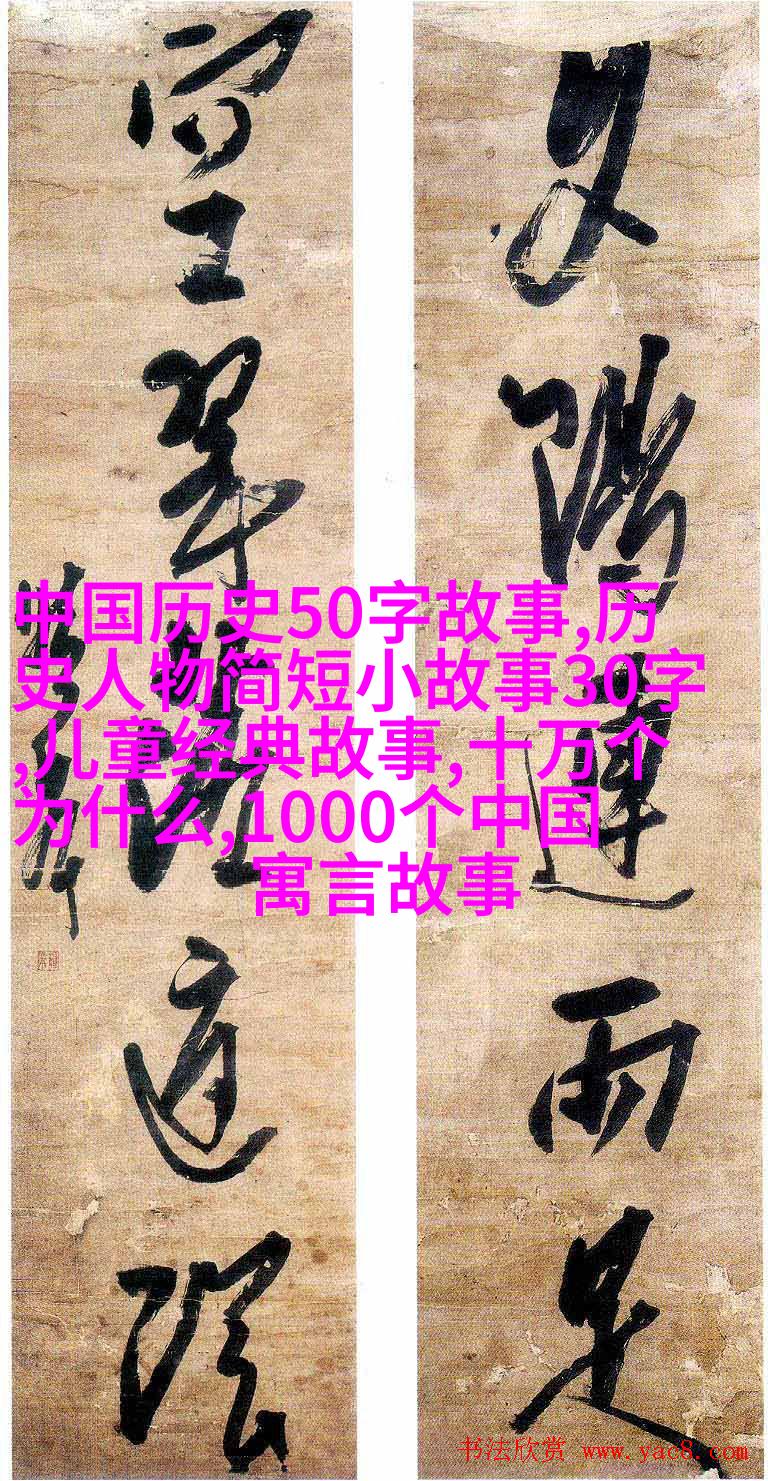 夕陽連雨足
空翠落庭陰
中国历史50字故事,历
史人物简短小故事30字
,儿童经典故事,十万个
为什么,1000个中国
寓言故事
书法欣赏 www.yac8.com